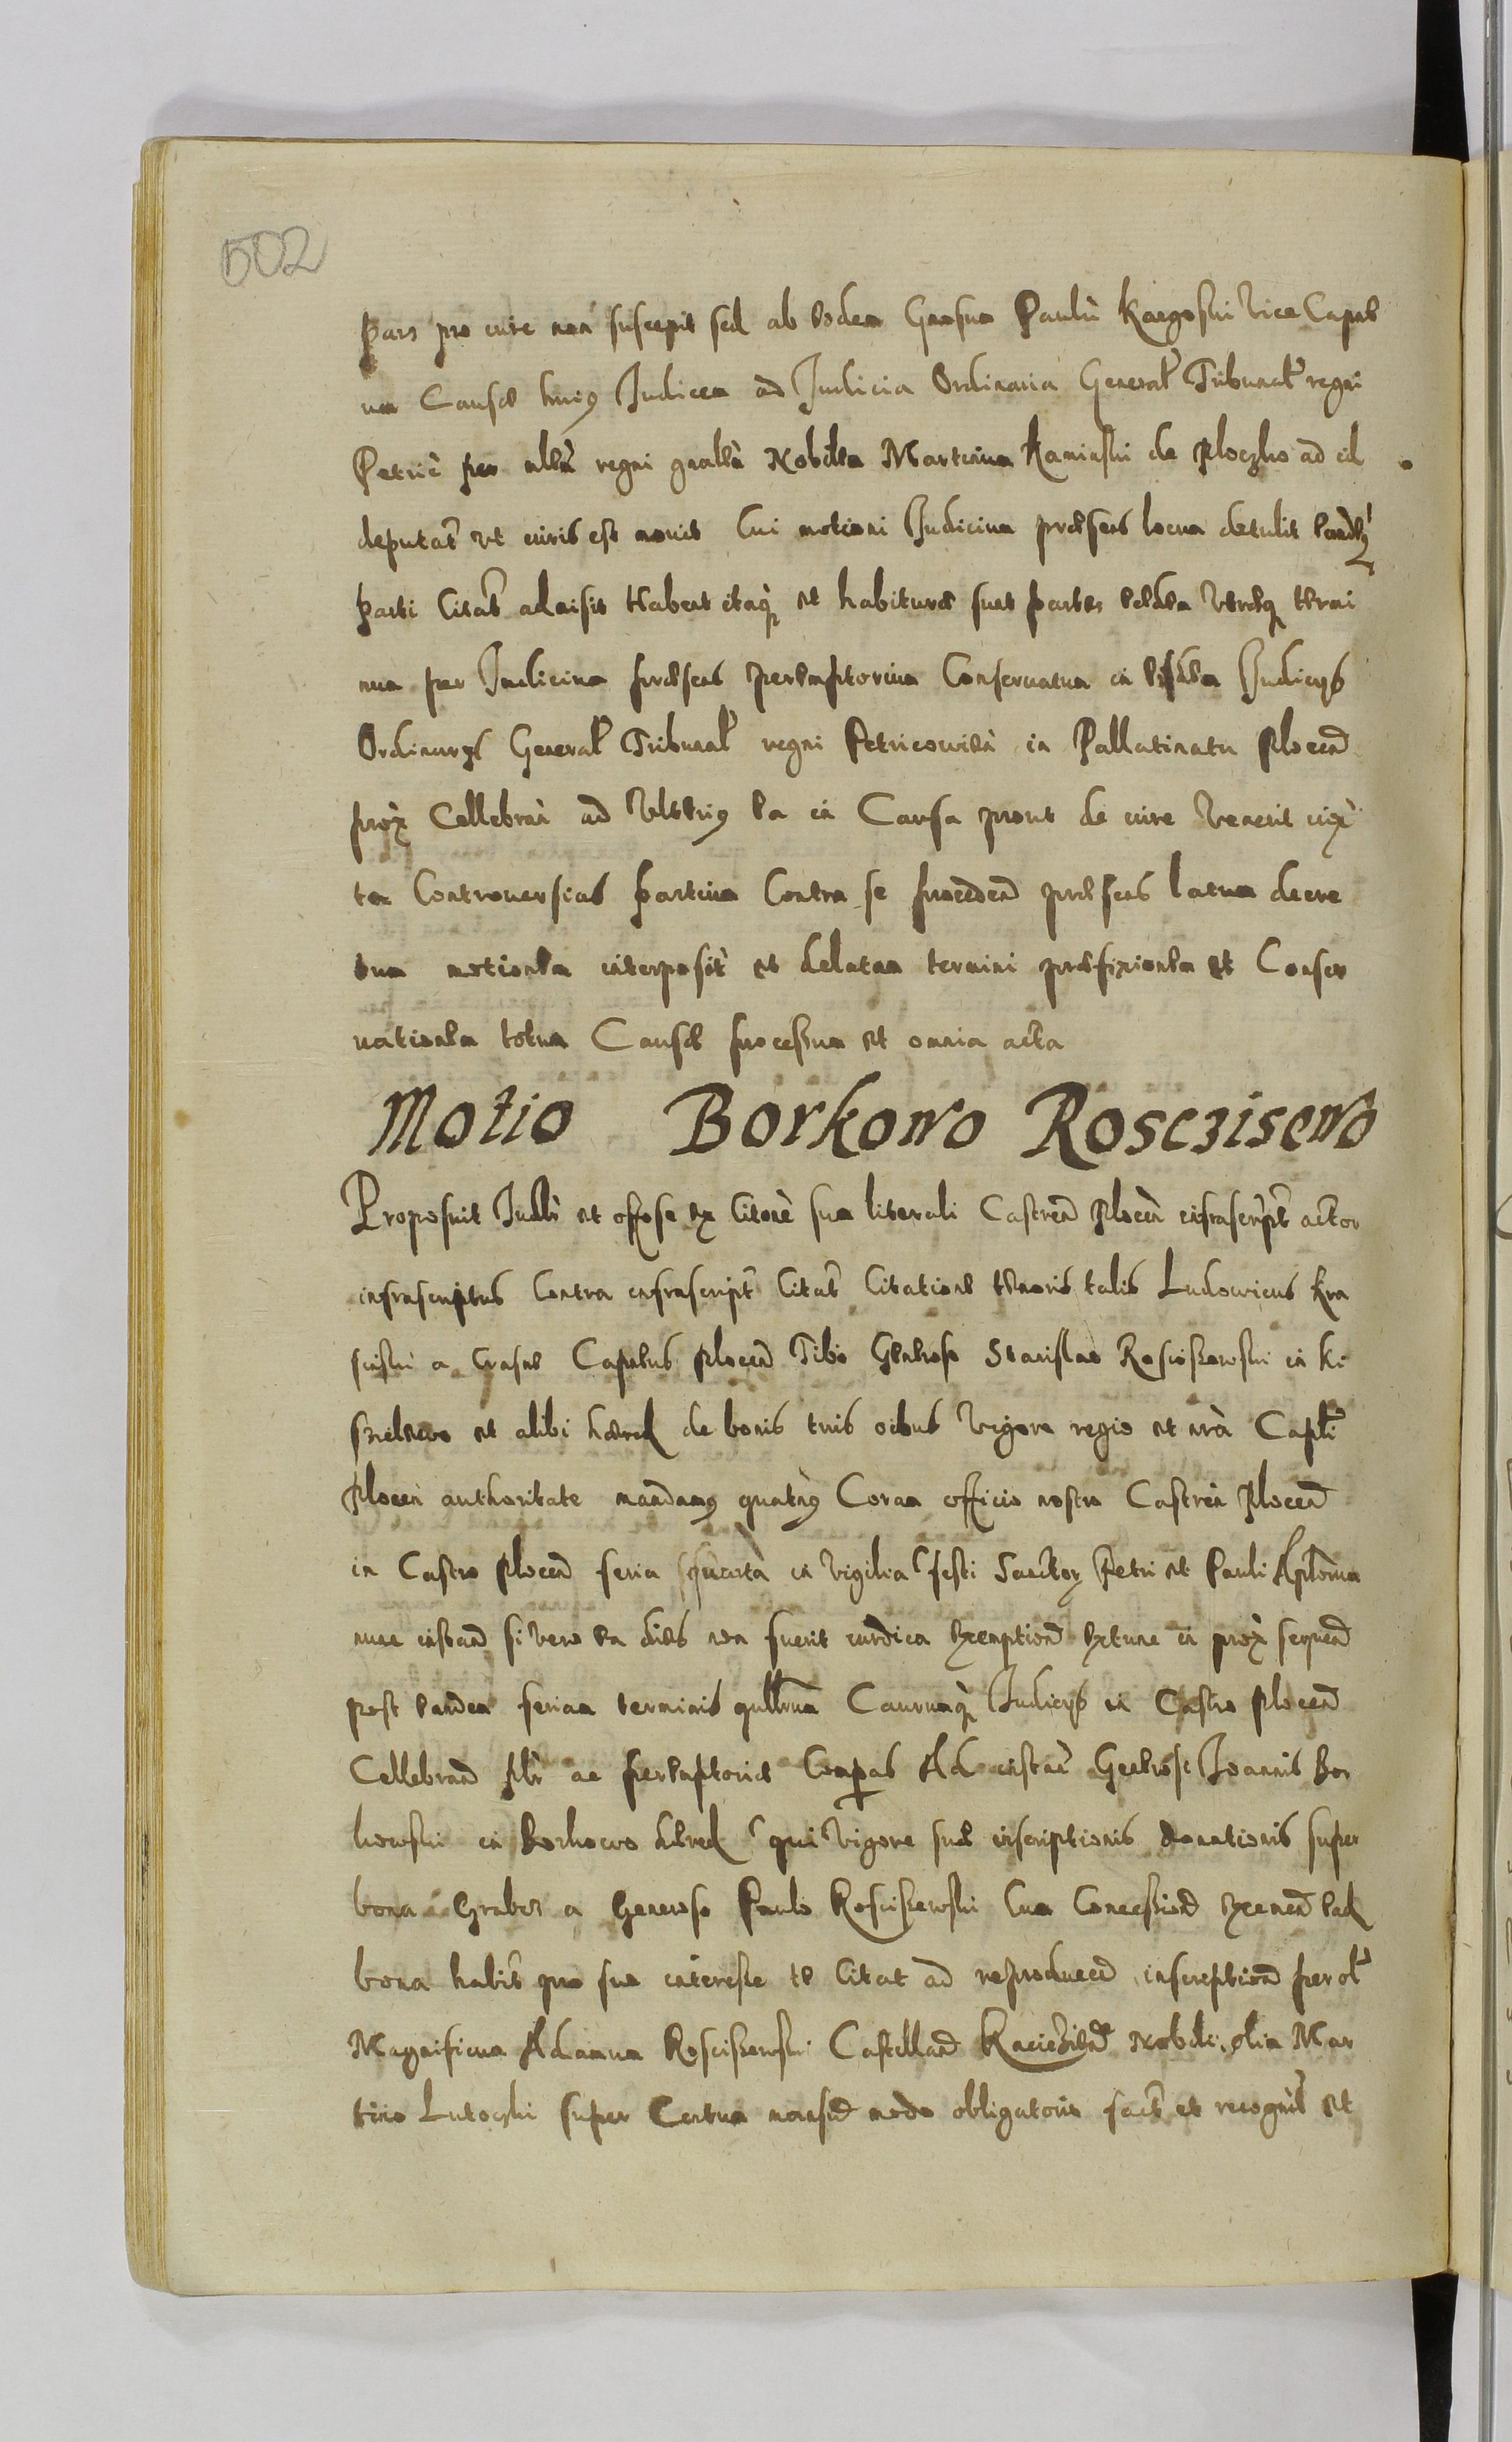 502
pars pro iure non suscepit sed ab eodem Gnoso Paulu Kargoski Vice Capne
um Causæ huius Judicem ad Judicia Ordinaria General Tribunal regni
Petric per regni Nobilem Martinum Kaminski de Ploczko ad id
deputat ut iuris est mouit Cui motioni Judicium præsens locum detulit eandq
parti Citat admisit Habent itaq et habituræ sunt partes eædem Utræq termi
num per Judicium præsens peremptorium Conseruatum in eisdem Judicijs
Ordinarijs General Tribunal regni Petricouien in Pallatinatu Plocen
prox Cellebran ad Ulterius ea in Causa prout de iure Venerit iux
ta Controuersias partium Contra se proceden præsens latum decre
tum motionem interposit et delatam termini præfixionem et Conser
uationem totum Causæ processum et omnia acta
Motio Borkowo Rosczisewo
Proposuit Judr et offose ex Citone sua literali Castren Plocen infrascript actor
infrascriptus Contra infrascript Citat Citatione tenoris talis Ludouicus Kra
sinski a Crasne Capneus Plocen Tibi Genroso Stanislao Rosciszewski in Ki
szielewo et alibi hæred de bonis tuis oibus Vigore regio et nra Capli
Plocen authoritate mandamus quatns Coram officio nostro Castren Plocen
in Castro Plocen feria quarta in Vigilia festi Sanctor Petri et Pauli Aplorum
nunc instan si vero ea dies non fuerit iurdica exemption extunc in prox sequen
post eandem feriam terminis qurllrum Caurumq Judicijs in Castro Plocen
Cellebran plr ac peremptorie Compas Ad instan Genrosi Joannis Bor
kowski in Borkowo hæred qui Vigore suæ inscriptionis donationis super
bona Grabez a Generoso Paulo Rosciszewski Cum Concession exemen ead
bona habit pro suo interesse te Citat ad reproducen inscription per ol
Magnificum Adamum Rosciszewski Castellan Raciazen Nobili olim Mar
tino Lutoczki super Certum mansu modo obligatorio fact et recognit et